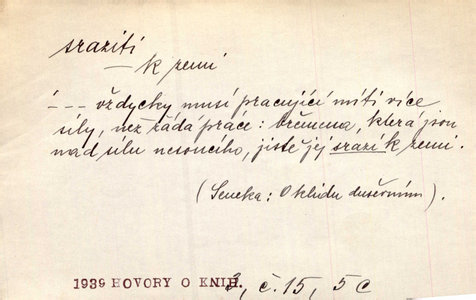 sraziti
— k zemi
i - - - vždycky musí pracující míti více
síly, než žádá práce: břemena, která jsou
nad sílu nesoucího, jistě jej srazí k zemi.
(Seneka: O klidu duševním).
1939 HOVORY O KNIH. 3, č. 15, 5 C